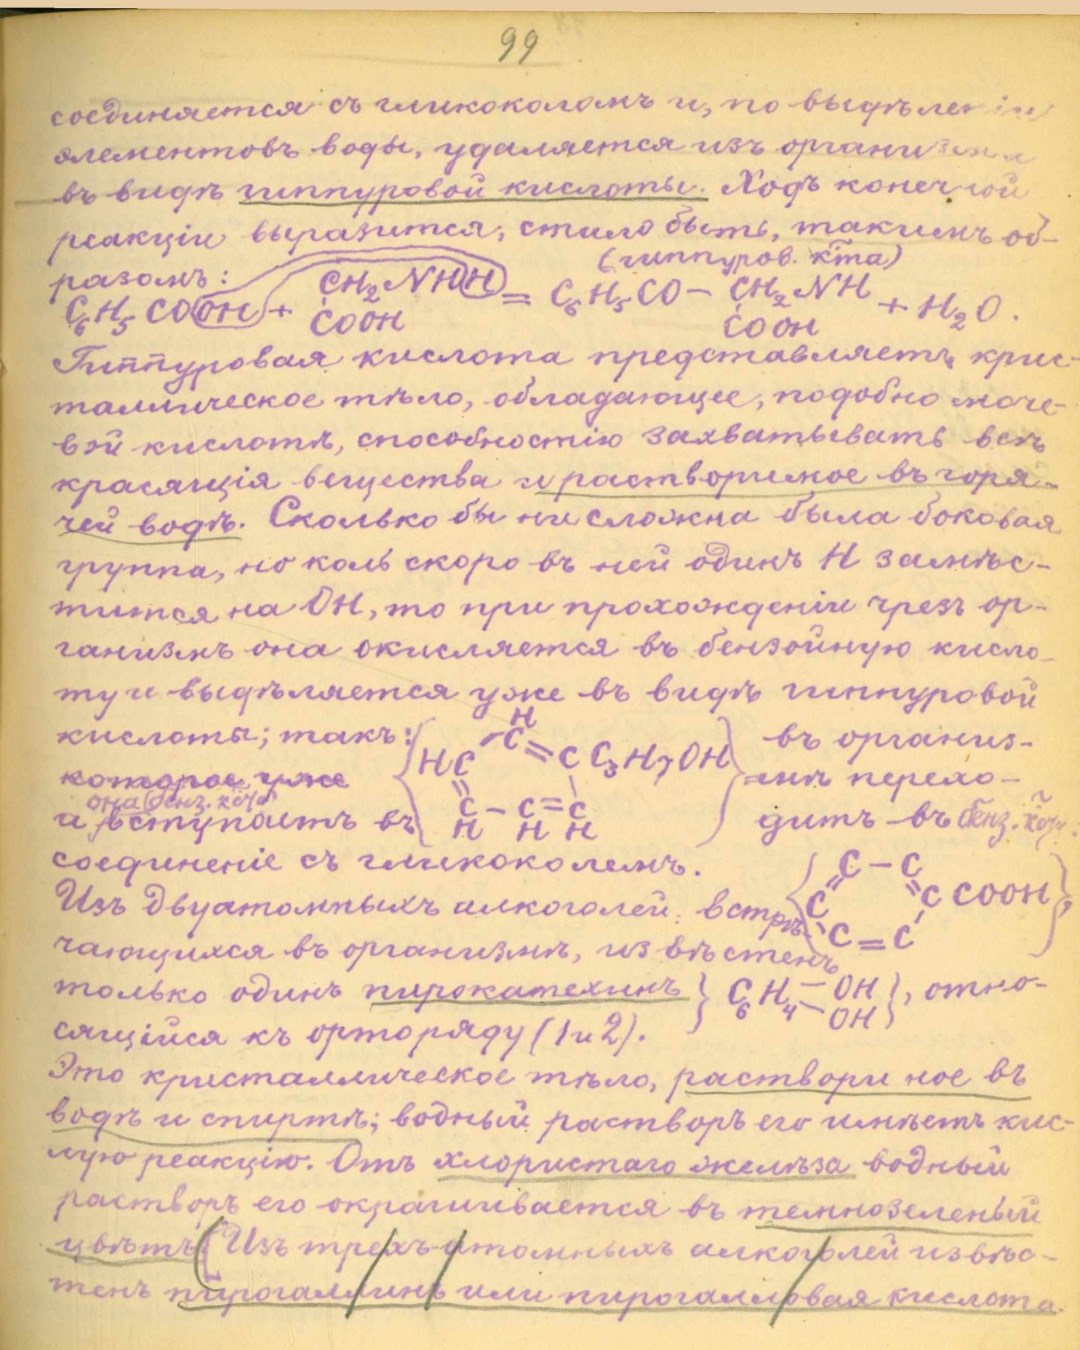 99
соединяется съ гликоколомъ и, по выдѣленiи
элементовъ воды, удаляется изъ организма
въ видѣ гиппуровой кислоты. Ходъ конечной
реакцiи выразится, стало быть, такимъ об-
разомъ: (гиппуров. к̃та)
C₆H₅COOH + CH₂NHH = C₆H₅CO – CH₂NH + H₂O.
COOH COOH
Гиппуровая кислота представляетъ крис-
таллическое тѣло, обладающее, подобно моче-
вой кислотѣ, способностiю захватывать всѣ
красящiя вещества и растворимое въ горя-
чей водѣ. Сколько бы ни сложна была боковая
группа, но коль скоро въ ней одинъ H замѣс-
тится на OH, то при прохожденiи чрезъ ор-
ганизмъ она окисляется въ бензойную кисло-
ту и выдѣляется уже въ видѣ гиппуровой
кислоты; такъ: HC – CH = C C₃H₇OH въ организ-
которое уже мѣ перехо-
она (бенз. к̃ота)
а вступаетъ въ C – C = C дитъ въ бенз. к̃оту
H H H
соединенiе съ гликоколемъ. C – C
Изъ двуатомныхъ алкоголей, встрѣ- C C COOH,
чающихся въ организмѣ, извѣстенъ C = C
только одинъ пирокатехинъ C₆H₄ – OH, отно-
OH
сящiйся къ орторяду (1 и 2).
Это кристаллическое тѣло, растворимое въ
водѣ и спиртѣ; водный растворъ его имѣетъ кис-
лую реакцiю. Отъ хлористаго желѣза водный
растворъ его окрашивается въ темнозеленый
цвѣтъ. Изъ трехъ-атомныхъ алкоголей извѣс-
тенъ пирогаллинъ или пирогалловая кислота.